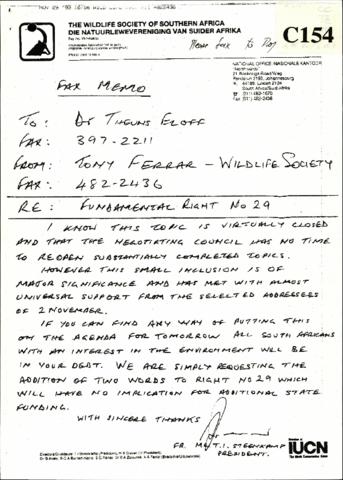 THE WILDLIFE SOCIETY OF SOUTHERN AFRICA
DIE NATUURLEWEVERENIGING VAN SUIDER AFRIKA
C154
NATIONAL OFFICE / NASIONALE KANTOOR
FAX MEMO
TO: Dr THEUNS ELOFF
FAX: 397-2211
FROM: TONY FERRAR - WILDLIFE SOCIETY
FAX: 482-2436
RE: FUNDAMENTAL RIGHT NO 29
I KNOW THIS TOPIC IS VIRTUALLY CLOSED
AND THAT THE NEGOTIATING COUNCIL HAS NO TIME
TO REOPEN SUBSTANTIALLY COMPLETED TOPICS.
HOWEVER THIS SMALL INCLUSION IS OF
MAJOR SIGNIFICANCE AND HAS MET WITH ALMOST
UNIVERSAL SUPPORT FROM THE SELECTED ADDRESSEES
OF 2 NOVEMBER.
IF YOU CAN FIND ANY WAY OF PUTTING THIS
ON THE AGENDA FOR TOMORROW ALL SOUTH AFRICANS
WITH AN INTEREST IN THE ENVIRONMENT WILL BE
IN YOUR DEBT. WE ARE SIMPLY REQUESTING THE
ADDITION OF TWO WORDS TO RIGHT NO 29 WHICH
WILL HAVE NO IMPLICATION FOR ADDITIONAL STATE
FUNDING.
WITH SINCERE THANKS
T.I. STEENKAMP
PRESIDENT.
IUCN
The World Conservation Union